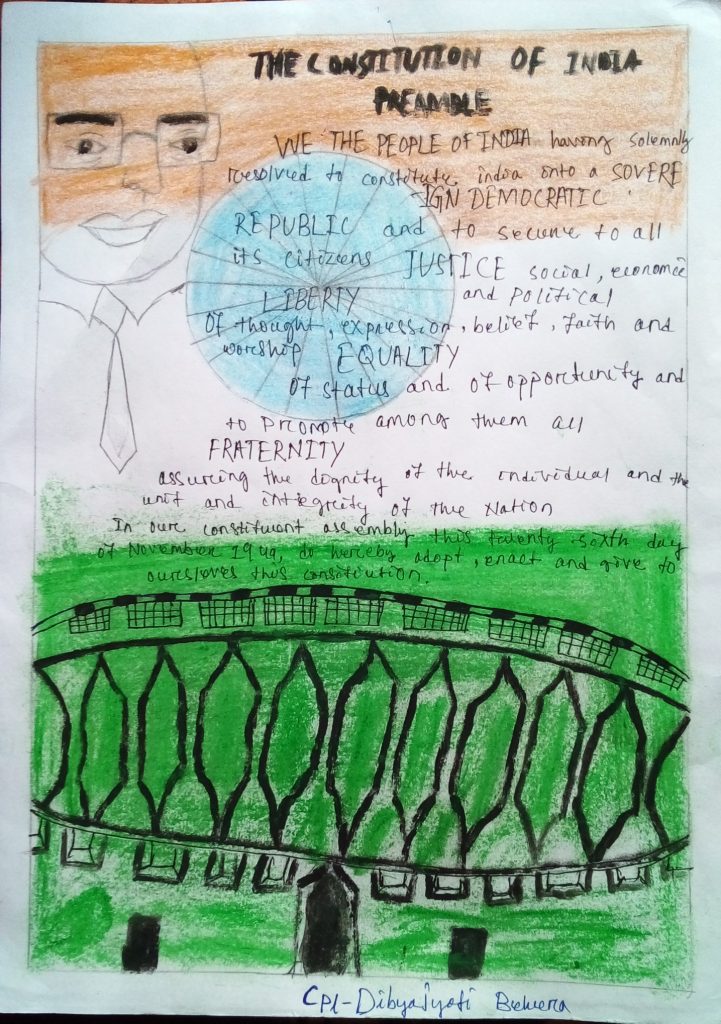 THE CONSTITUTION OF INDIA
PREAMBLE
WE THE PEOPLE OF INDIA having solemnly
resolved to constitute india onto a SOVERE
IGN DEMOCRATIC
REPUBLIC and to secure to all
its citizens JUSTICE social, economic
and political
LIBERTY
of thought, expression, belief, faith and
worship EQUALITY
of status and of opportunity and
to promote among them all
FRATERNITY
assuring the dignity of the individual and the
unit and integrity of the Nation
In our constituent assembly this twenty sixth day
of November 1949, do hereby adopt, enact and give to
ourselves this constitution.
Cpl-Dibyajyoti Behera